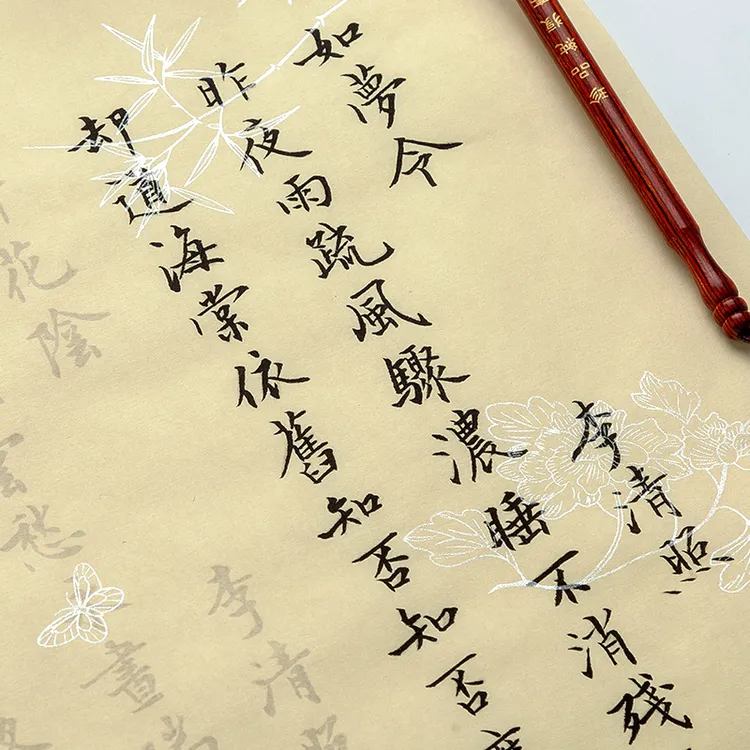 如夢令 李清照
昨夜雨疏風驟濃睡不消殘
却道海棠依舊知否知否
花陰 李清照
雲愁 晝
品珍